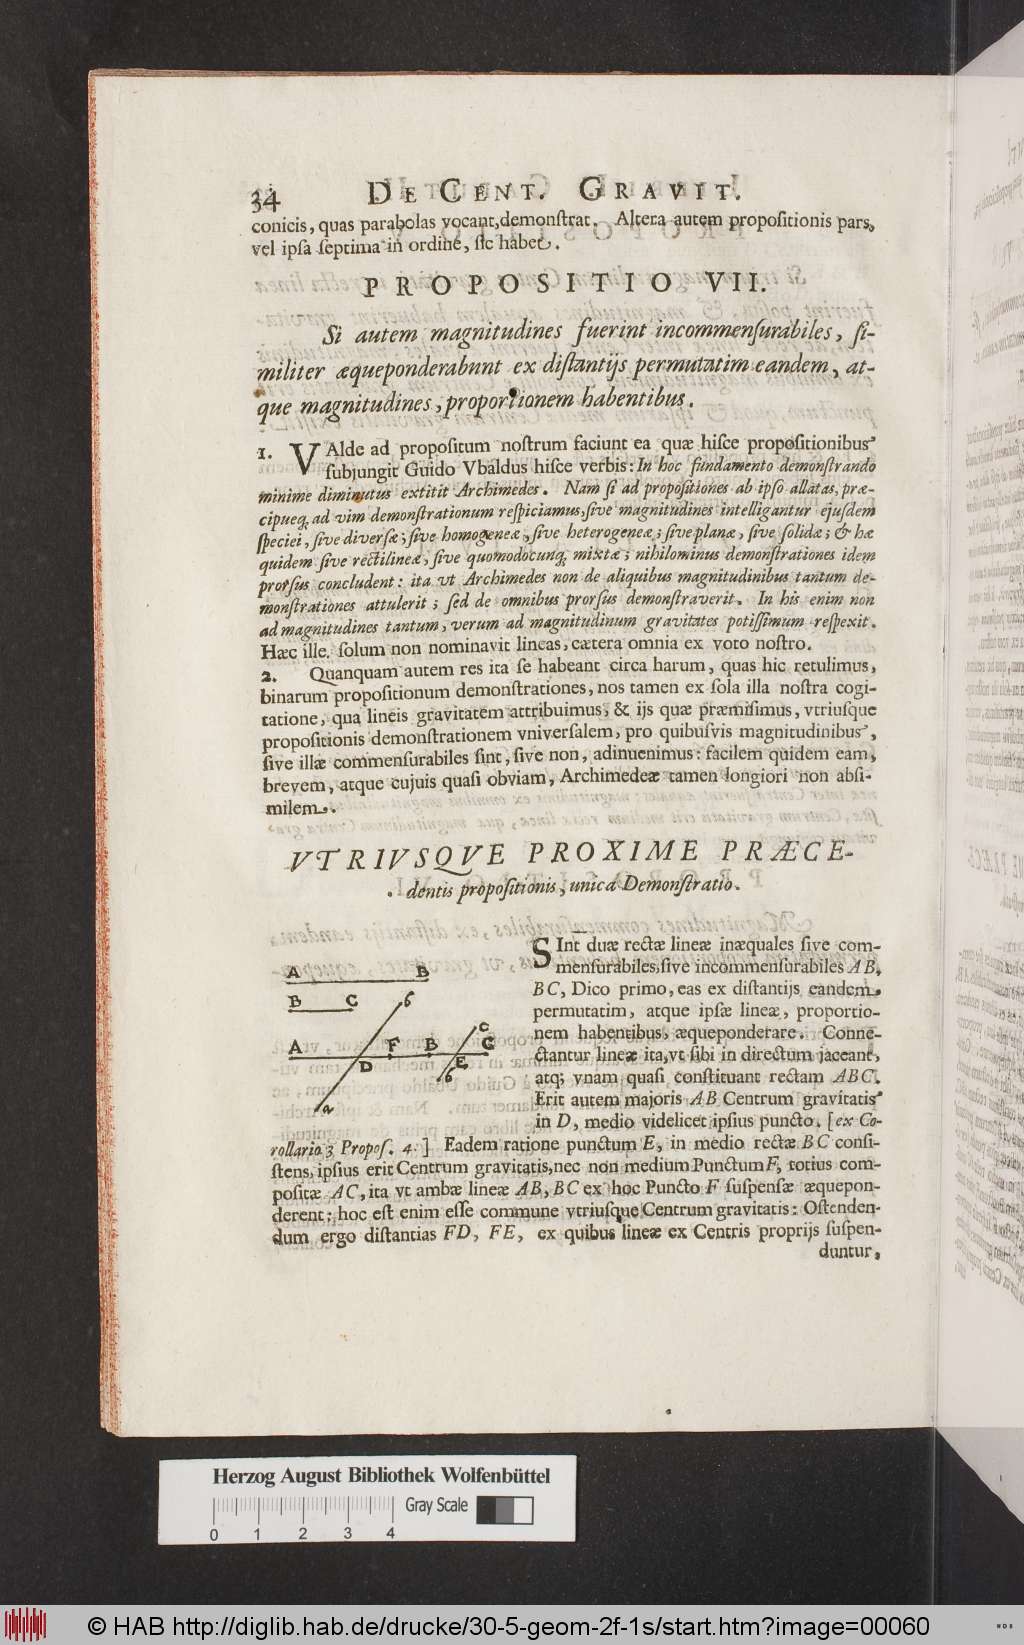 34 DE CENT. GRAVIT.
conicis, quas parabolas vocant, demonſtrat. Altera autem propoſitionis pars,
vel ipſa ſeptima in ordine, ſic habet.
PROPOSITIO VII.
Si autem magnitudines fuerint incommenſurabiles, ſi-
militer æqueponderabunt ex diſtantijs permutatim eandem, at-
que magnitudines, proportionem habentibus.
1. VAlde ad propoſitum noſtrum faciunt ea quæ hiſce propoſitionibus
ſubjungit Guido Vbaldus hiſce verbis: In hoc fundamento demonſtrando
minime diminutus extitit Archimedes. Nam ſi ad propoſitiones ab ipſo allatas, præ-
cipueq; ad vim demonſtrationum reſpiciamus, ſive magnitudines intelligantur ejuſdem
ſpeciei, ſive diverſæ; ſive homogeneæ, ſive heterogeneæ; ſive planæ, ſive ſolidæ; & hæ
quidem ſive rectilineæ, ſive quomodocunq; mixtæ; nihilominus demonſtrationes idem
prorſus concludent: ita vt Archimedes non de aliquibus magnitudinibus tantum de-
monſtrationes attulerit; ſed de omnibus prorſus demonſtraverit. In his enim non
ad magnitudines tantum, verum ad magnitudinum gravitates potiſſimum reſpexit.
Hæc ille. ſolum non nominavit lineas, cætera omnia ex voto noſtro.
2. Quanquam autem res ita ſe habeant circa harum, quas hic retulimus,
binarum propoſitionum demonſtrationes, nos tamen ex ſola illa noſtra cogi-
tatione, qua lineis gravitatem attribuimus, & ijs quæ præmiſimus, vtriuſque
propoſitionis demonſtrationem vniverſalem, pro quibuſvis magnitudinibus,
ſive illæ commenſurabiles ſint, ſive non, adinuenimus: facilem quidem eam,
brevem, atque cujuis quaſi obviam, Archimedeæ tamen longiori non abſi-
milem.
VTRIVSQVE PROXIME PRÆCE-
dentis propoſitionis, unica Demonſtratio.
A B
B C
b
c
A F B C
D E
b
a
SInt duæ rectæ lineæ inæquales ſive com-
menſurabiles, ſive incommenſurabiles AB,
BC, Dico primo, eas ex diſtantijs eandem
permutatim, atque ipſæ lineæ, proportio-
nem habentibus, æqueponderare. Conne-
ctantur lineæ ita, vt ſibi in directum jaceant,
atq; vnam quaſi conſtituant rectam ABC.
Erit autem majoris AB Centrum gravitatis
in D, medio videlicet ipſius puncto. [ex Co-
rollario 3 Propoſ. 4.] Eadem ratione punctum E, in medio rectæ BC conſi-
ſtens, ipſius erit Centrum gravitatis, nec non medium Punctum F, totius com-
poſitæ AC, ita vt ambæ lineæ AB, BC ex hoc Puncto F ſuſpenſæ æquepon-
derent; hoc eſt enim eſſe commune vtriuſque Centrum gravitatis: Oſtenden-
dum ergo diſtantias FD, FE, ex quibus lineæ ex Centris proprijs ſuſpen-
duntur,
Herzog August Bibliothek Wolfenbüttel
Gray Scale
0 1 2 3 4
© HAB http://diglib.hab.de/drucke/30-5-geom-2f-1s/start.htm?image=00060